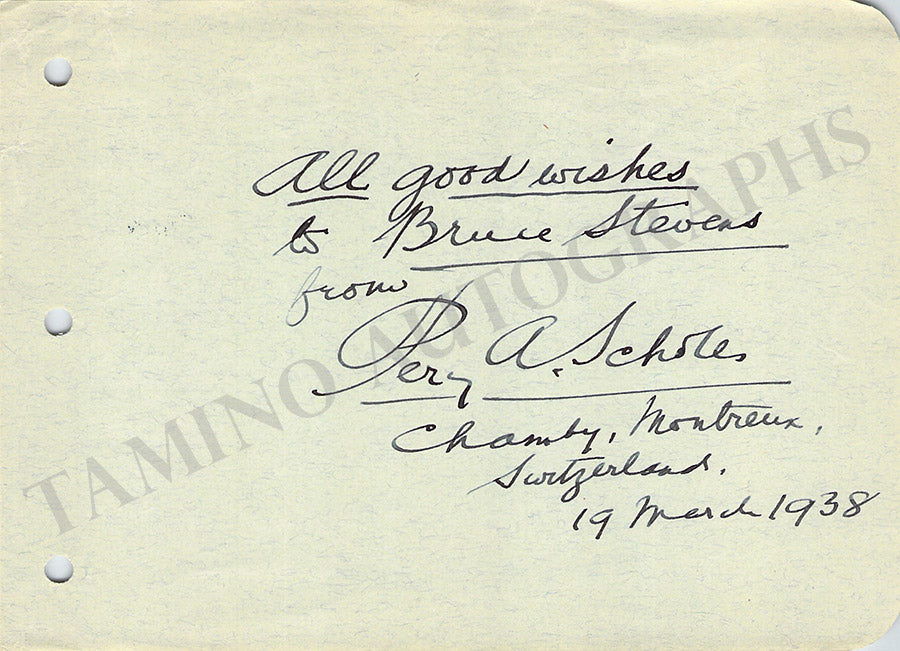 All good wishes
to Bruce Stevens
from
Percy A. Scholes
Chamby, Montreux,
Switzerland.
19 March 1938
TAMINO AUTOGRAPHS